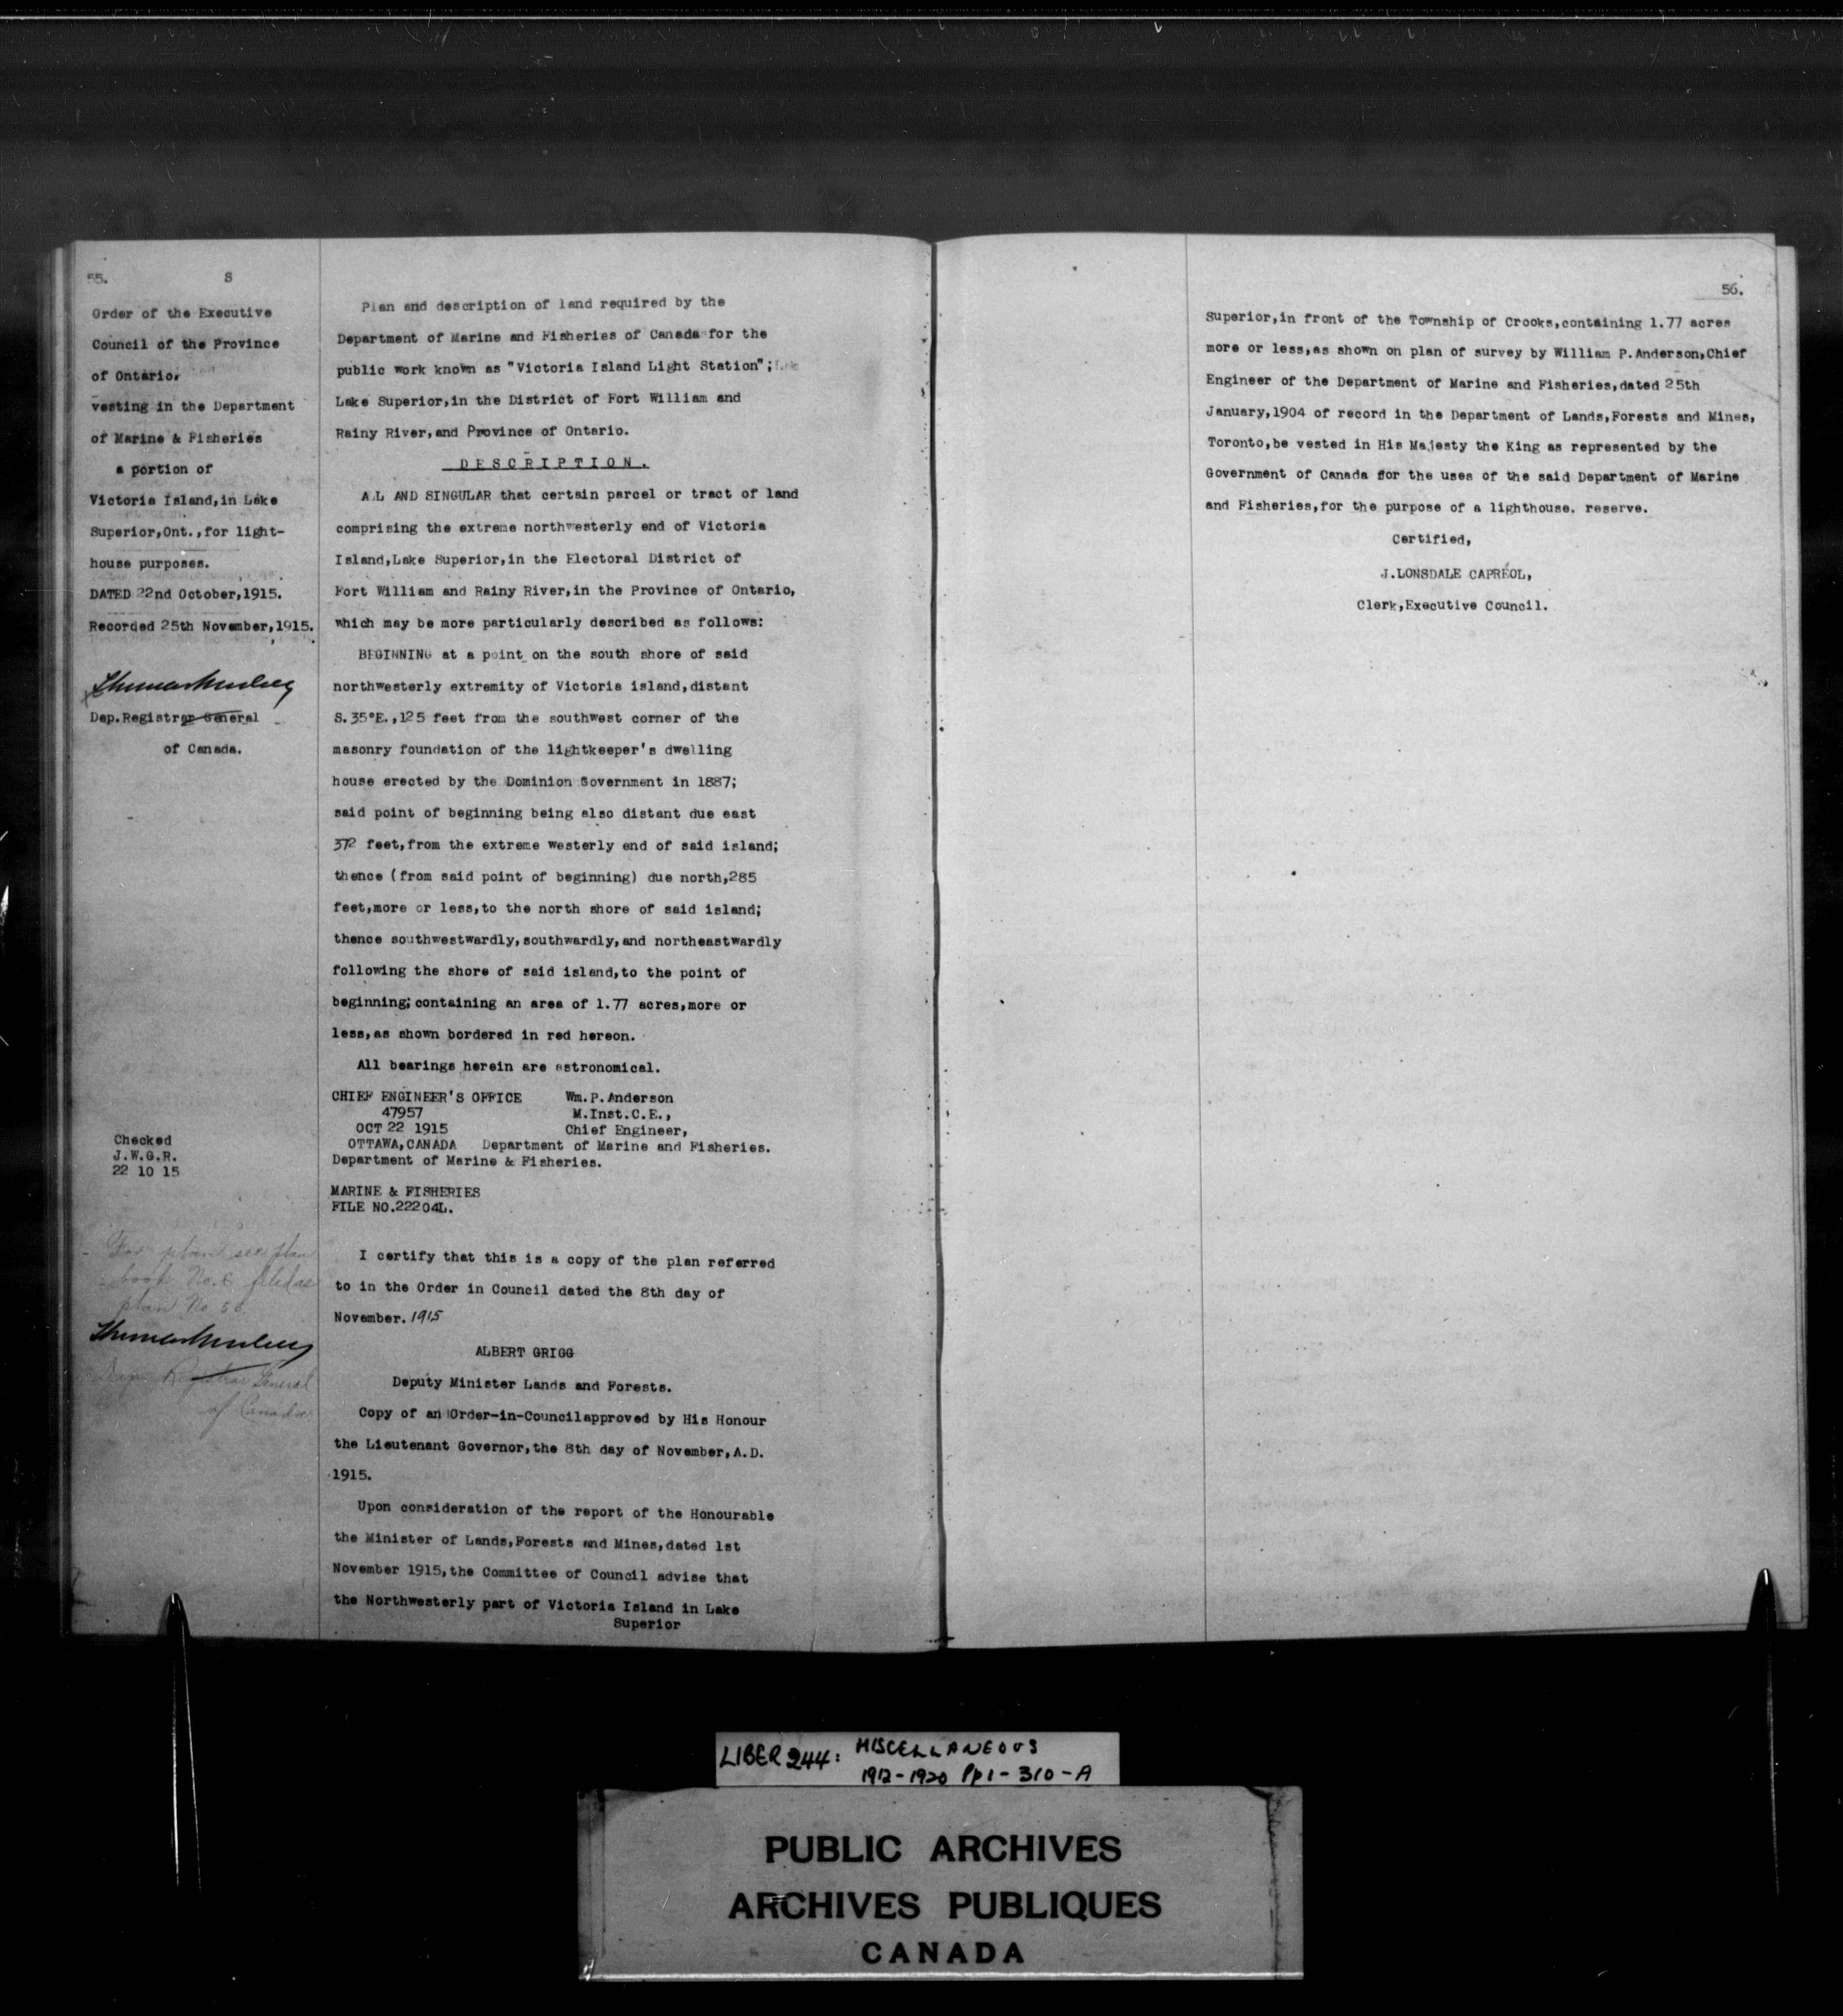 55.
S
Order of the Executive
Council of the Province
of Ontario,
vesting in the Department
of Marine & Fisheries
a portion of
Victoria Island,in Lake
Superior,Ont.,for light-
house purposes.
DATED 22nd October,1915.
Recorded 25th November,1915.
Dep.Registrar General
of Canada.
Checked
J.W.G.R.
22 10 15
For plan see plan
book No. filed as
plan No
Dep. Registrar General
of Canada.
Plan and description of land required by the
Department of Marine and Fisheries of Canada for the
public work known as "Victoria Island Light Station";
Lake Superior,in the District of Fort William and
Rainy River,and Province of Ontario.
DESCRIPTION.
ALL AND SINGULAR that certain parcel or tract of land
comprising the extreme northwesterly end of Victoria
Island,Lake Superior,in the Electoral District of
Fort William and Rainy River,in the Province of Ontario,
which may be more particularly described as follows:
BEGINNING at a point on the south shore of said
northwesterly extremity of Victoria island,distant
S.35°E.,125 feet from the southwest corner of the
masonry foundation of the lightkeeper's dwelling
house erected by the Dominion Government in 1887;
said point of beginning being also distant due east
372 feet,from the extreme westerly end of said island;
thence (from said point of beginning) due north,285
feet,more or less,to the north shore of said island;
thence southwestwardly,southwardly,and northeastwardly
following the shore of said island,to the point of
beginning;containing an area of 1.77 acres,more or
less,as shown bordered in red hereon.
All bearings herein are astronomical.
CHIEF ENGINEER'S OFFICE Wm.P.Anderson
47957 M.Inst.C.E.,
OCT 22 1915 Chief Engineer,
OTTAWA,CANADA Department of Marine and Fisheries.
Department of Marine & Fisheries.
MARINE & FISHERIES
FILE NO.22204L.
I certify that this is a copy of the plan referred
to in the Order in Council dated the 8th day of
November. 1915
ALBERT GRIGG
Deputy Minister Lands and Forests.
Copy of an Order-in-Councilapproved by His Honour
the Lieutenant Governor,the 8th day of November,A.D.
1915.
Upon consideration of the report of the Honourable
the Minister of Lands,Forests and Mines,dated 1st
November 1915,the Committee of Council advise that
the Northwesterly part of Victoria Island in Lake
Superior
56.
Superior,in front of the Township of Crooks,containing 1.77 acres
more or less,as shown on plan of survey by William P.Anderson,Chief
Engineer of the Department of Marine and Fisheries,dated 25th
January,1904 of record in the Department of Lands,Forests and Mines,
Toronto,be vested in His Majesty the King as represented by the
Government of Canada for the uses of the said Department of Marine
and Fisheries,for the purpose of a lighthouse. reserve.
Certified,
J.LONSDALE CAPRÉOL,
Clerk,Executive Council.
LIBER 244: MISCELLANEOUS
1912-1920 Pp 1-310-A
PUBLIC ARCHIVES
ARCHIVES PUBLIQUES
CANADA